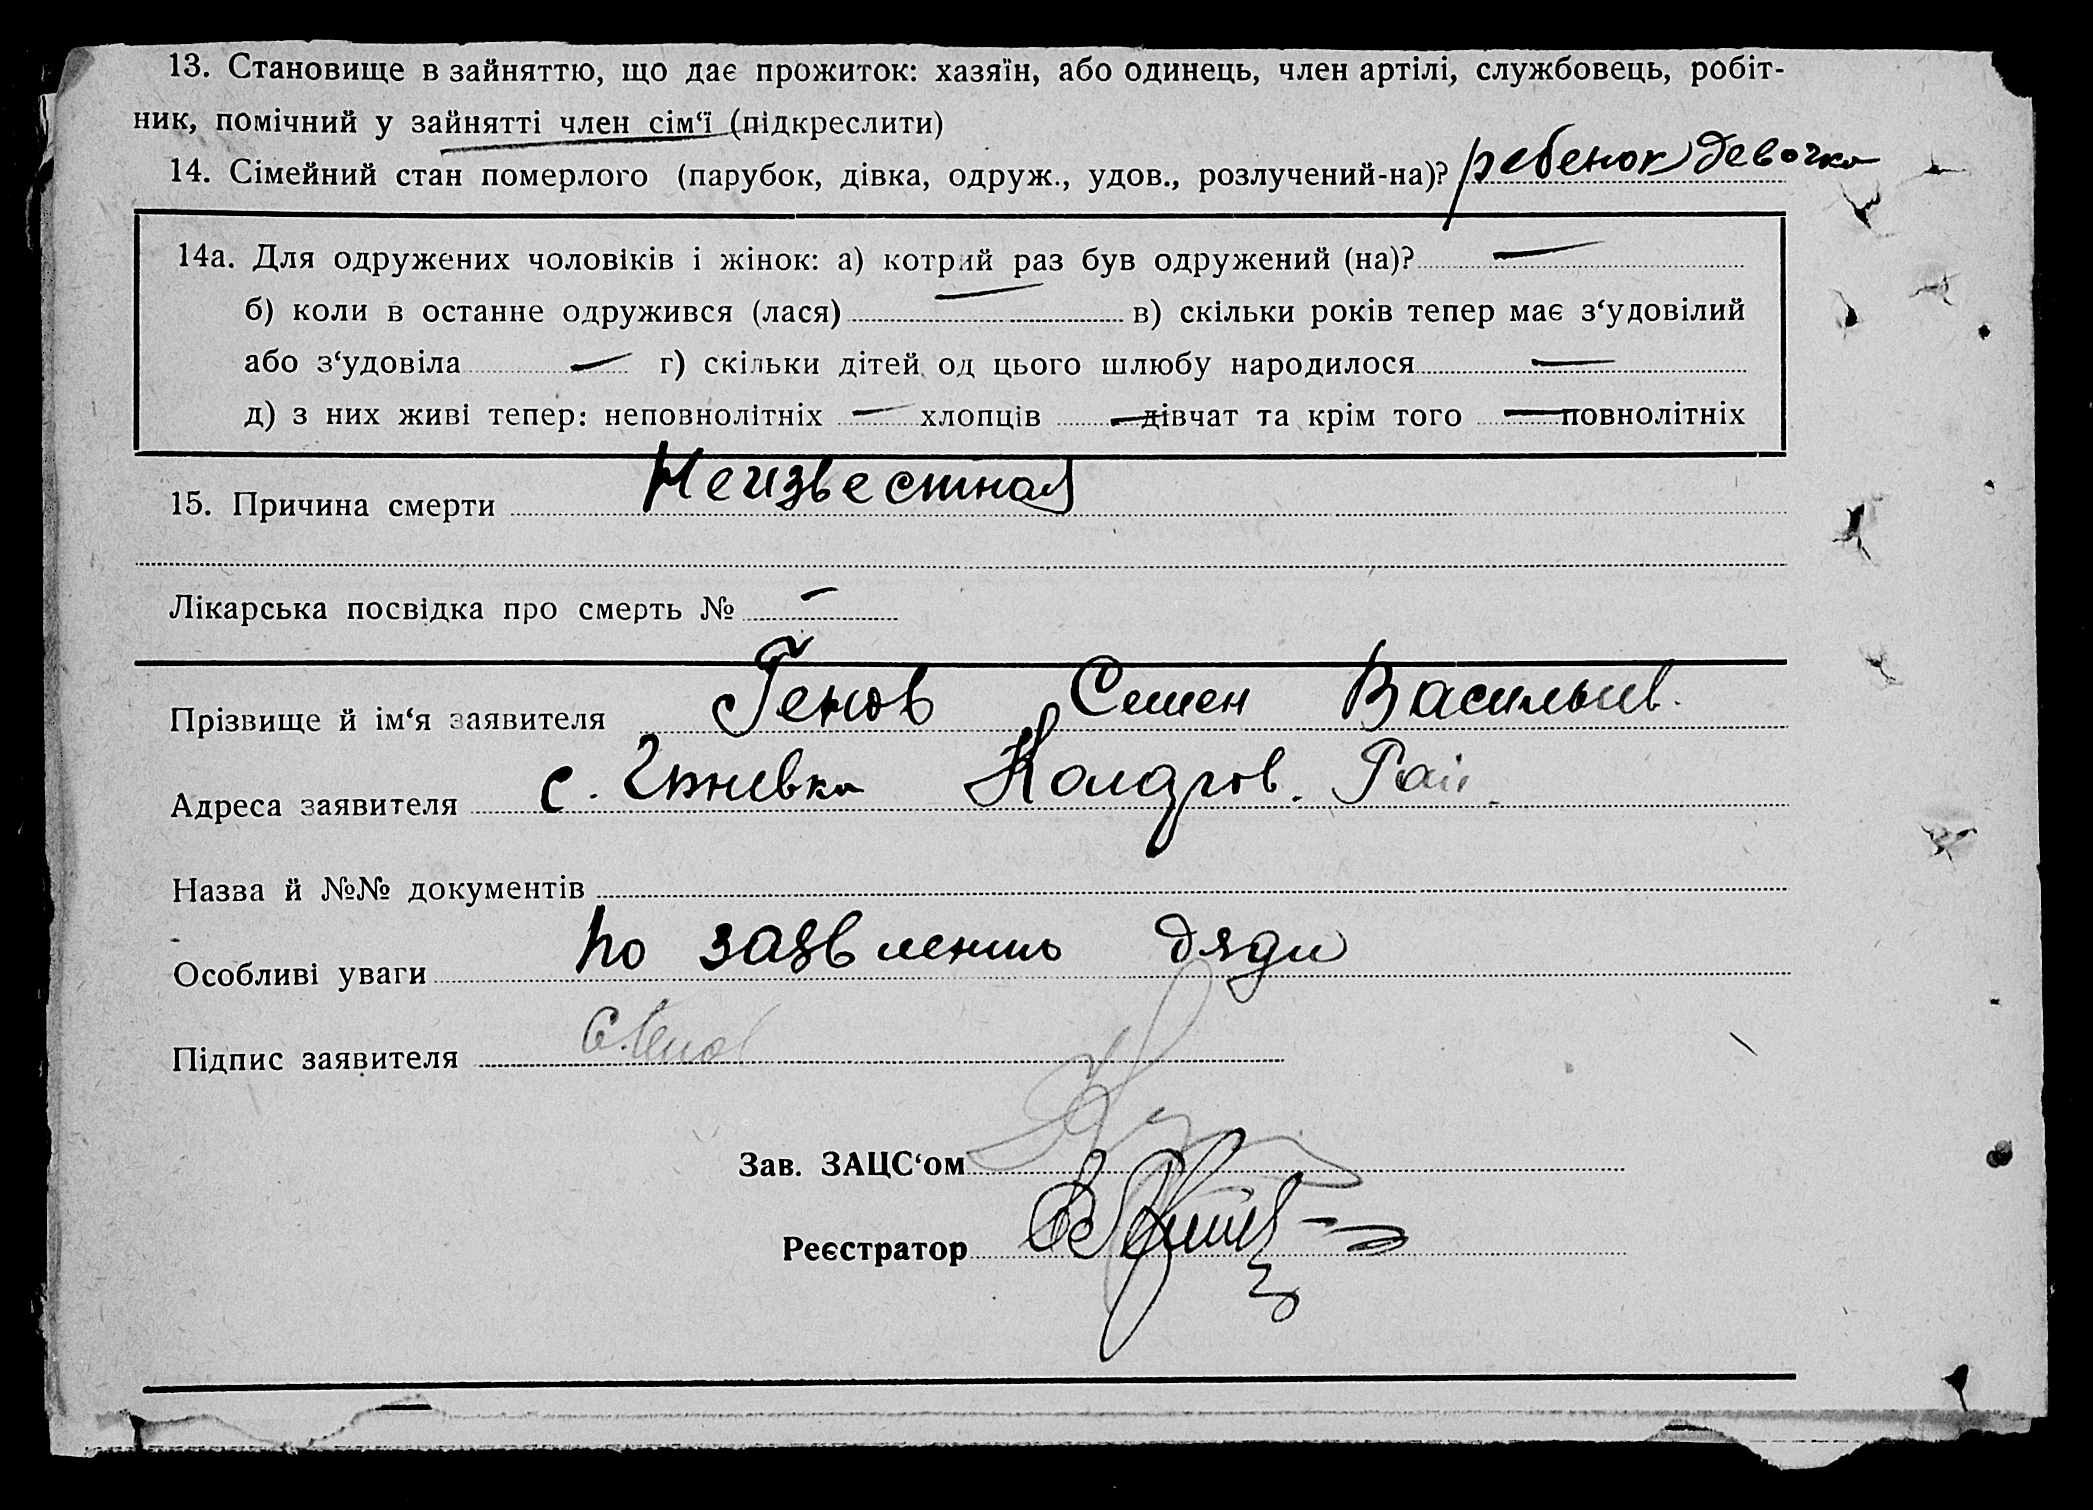 13. Становище в зайняттю, що дає прожиток: хазяїн, або одинець, член артілі, службовець, робіт-
ник, помічний у зайнятті член сім‘ї (підкреслити)
14. Сімейний стан померлого (парубок, дівка, одруж., удов., розлучений-на)? ребенок девочка
14а. Для одружених чоловіків і жінок: а) котрий раз був одружений (на)? —
б) коли в останне одружився (лася) — в) скільки років тепер має з‘удовілий
або з‘удовіла — г) скільки дітей од цього шлюбу народилося —
д) з них живі тепер: неповнолітніх — хлопців — дівчат та крім того — повнолітніх
15. Причина смерти Неизвестная
Лікарська посвідка про смерть № —
Прізвище й ім‘я заявителя Генов Семен Васильев.
Адреса заявителя с. Коларов. Рай.
Назва й №№ документів
Особливі уваги по заявлению дяди
Підпис заявителя СГенов
Зав. ЗАЦС‘ом
Реєстратор